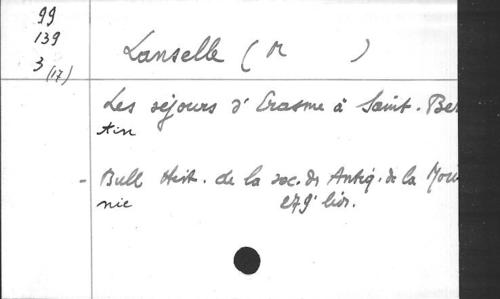 99
139
3 (17)
Lanselle ( M )
Les séjours d'Erasme à Saint-Ber
tin
- Bull Hist. de la soc. ds Antiq. de la Mori
nie 279e livr.